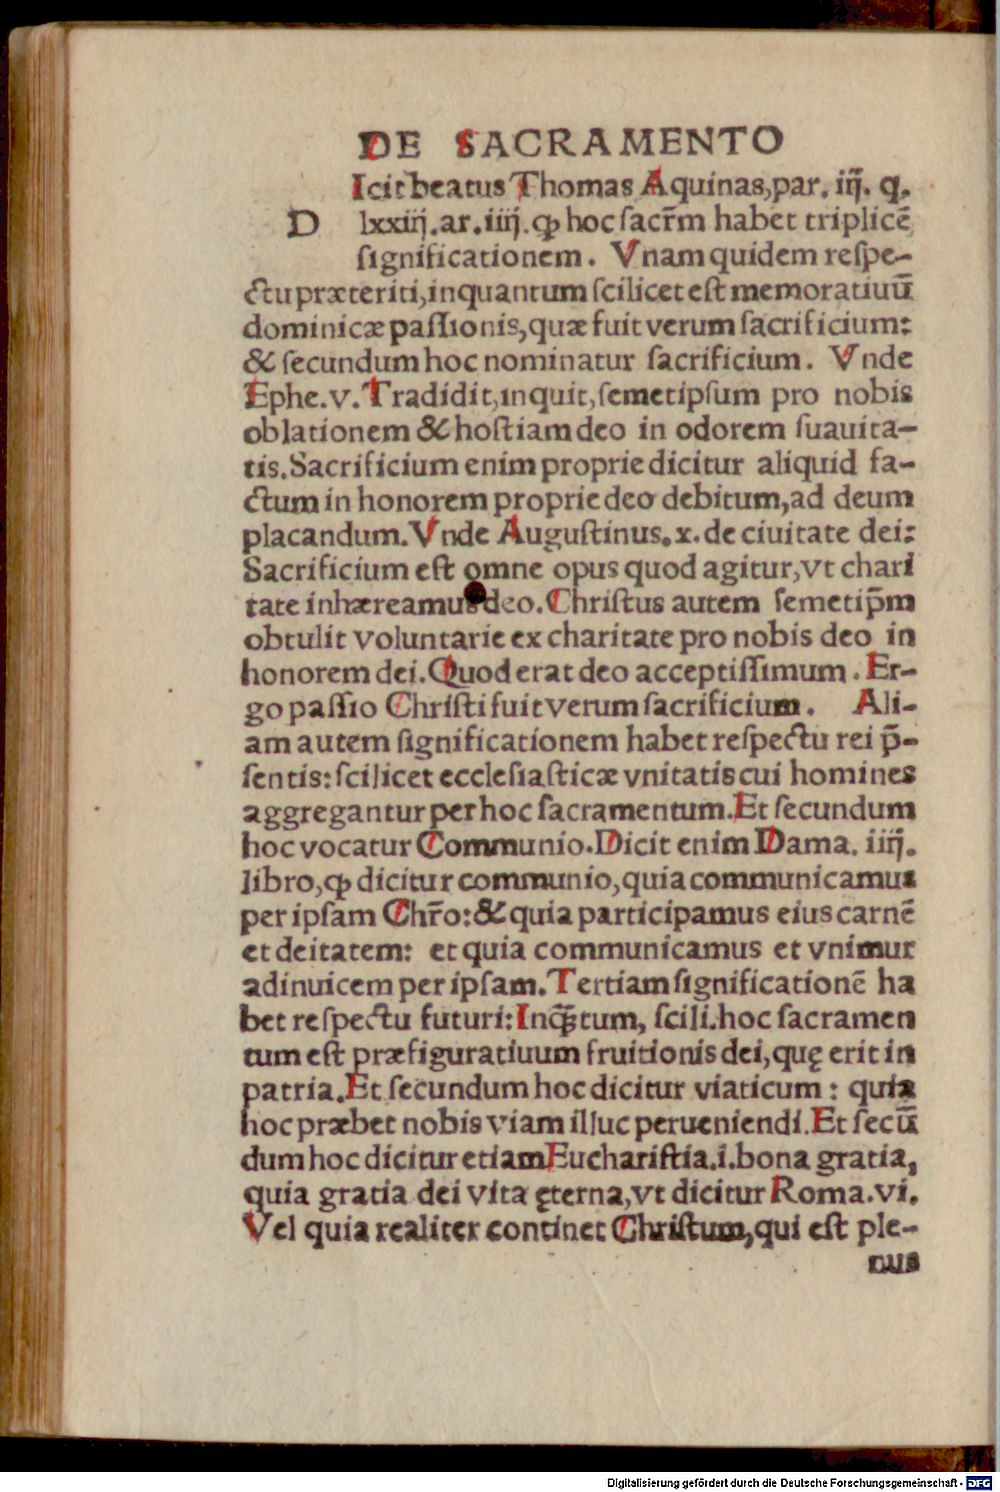 DE SACRAMENTO
Icit beatus Thomas Aquinas, par. iij. q.
D lxxiij. ar. iiij. ꝙ hoc sacr̄m habet triplicē
significationem. Vnam quidem respe-
ctu præteriti, inquantum scilicet est memoratiuū
dominicæ passionis, quæ fuit verum sacrificium:
& secundum hoc nominatur sacrificium. Vnde
Ephe. v. Tradidit, inquit, semetipsum pro nobis
oblationem & hostiam deo in odorem suauita-
tis. Sacrificium enim proprie dicitur aliquid fa-
ctum in honorem proprie deo debitum, ad deum
placandum. Vnde Augustinus. x. de ciuitate dei:
Sacrificium est omne opus quod agitur, vt chari
tate inhæreamus deo. Christus autem semetip̄m
obtulit voluntarie ex charitate pro nobis deo in
honorem dei. Quod erat deo acceptissimum. Er-
go passio Christi fuit verum sacrificium. Ali-
am autem significationem habet respectu rei p̄-
sentis: scilicet ecclesiasticæ vnitatis cui homines
aggregantur per hoc sacramentum. Et secundum
hoc vocatur Communio. Dicit enim Dama. iiij.
libro, ꝙ dicitur communio, quia communicamus
per ipsam Chr̄o: & quia participamus eius carnē
et deitatem: et quia communicamus et vnimur
adinuicem per ipsam. Tertiam significationē ha
bet respectu futuri: Inqꝫtum, scili. hoc sacramen
tum est præfiguratiuum fruitionis dei, quę erit in
patria. Et secundum hoc dicitur viaticum: quia
hoc præbet nobis viam illuc perueniendi. Et secū
dum hoc dicitur etiam Eucharistia. i. bona gratia,
quia gratia dei vita ęterna, vt dicitur Roma. vi.
Vel quia realiter continet Christum, qui est ple-
nus
Digitalisierung gefördert durch die Deutsche Forschungsgemeinschaft - DFG